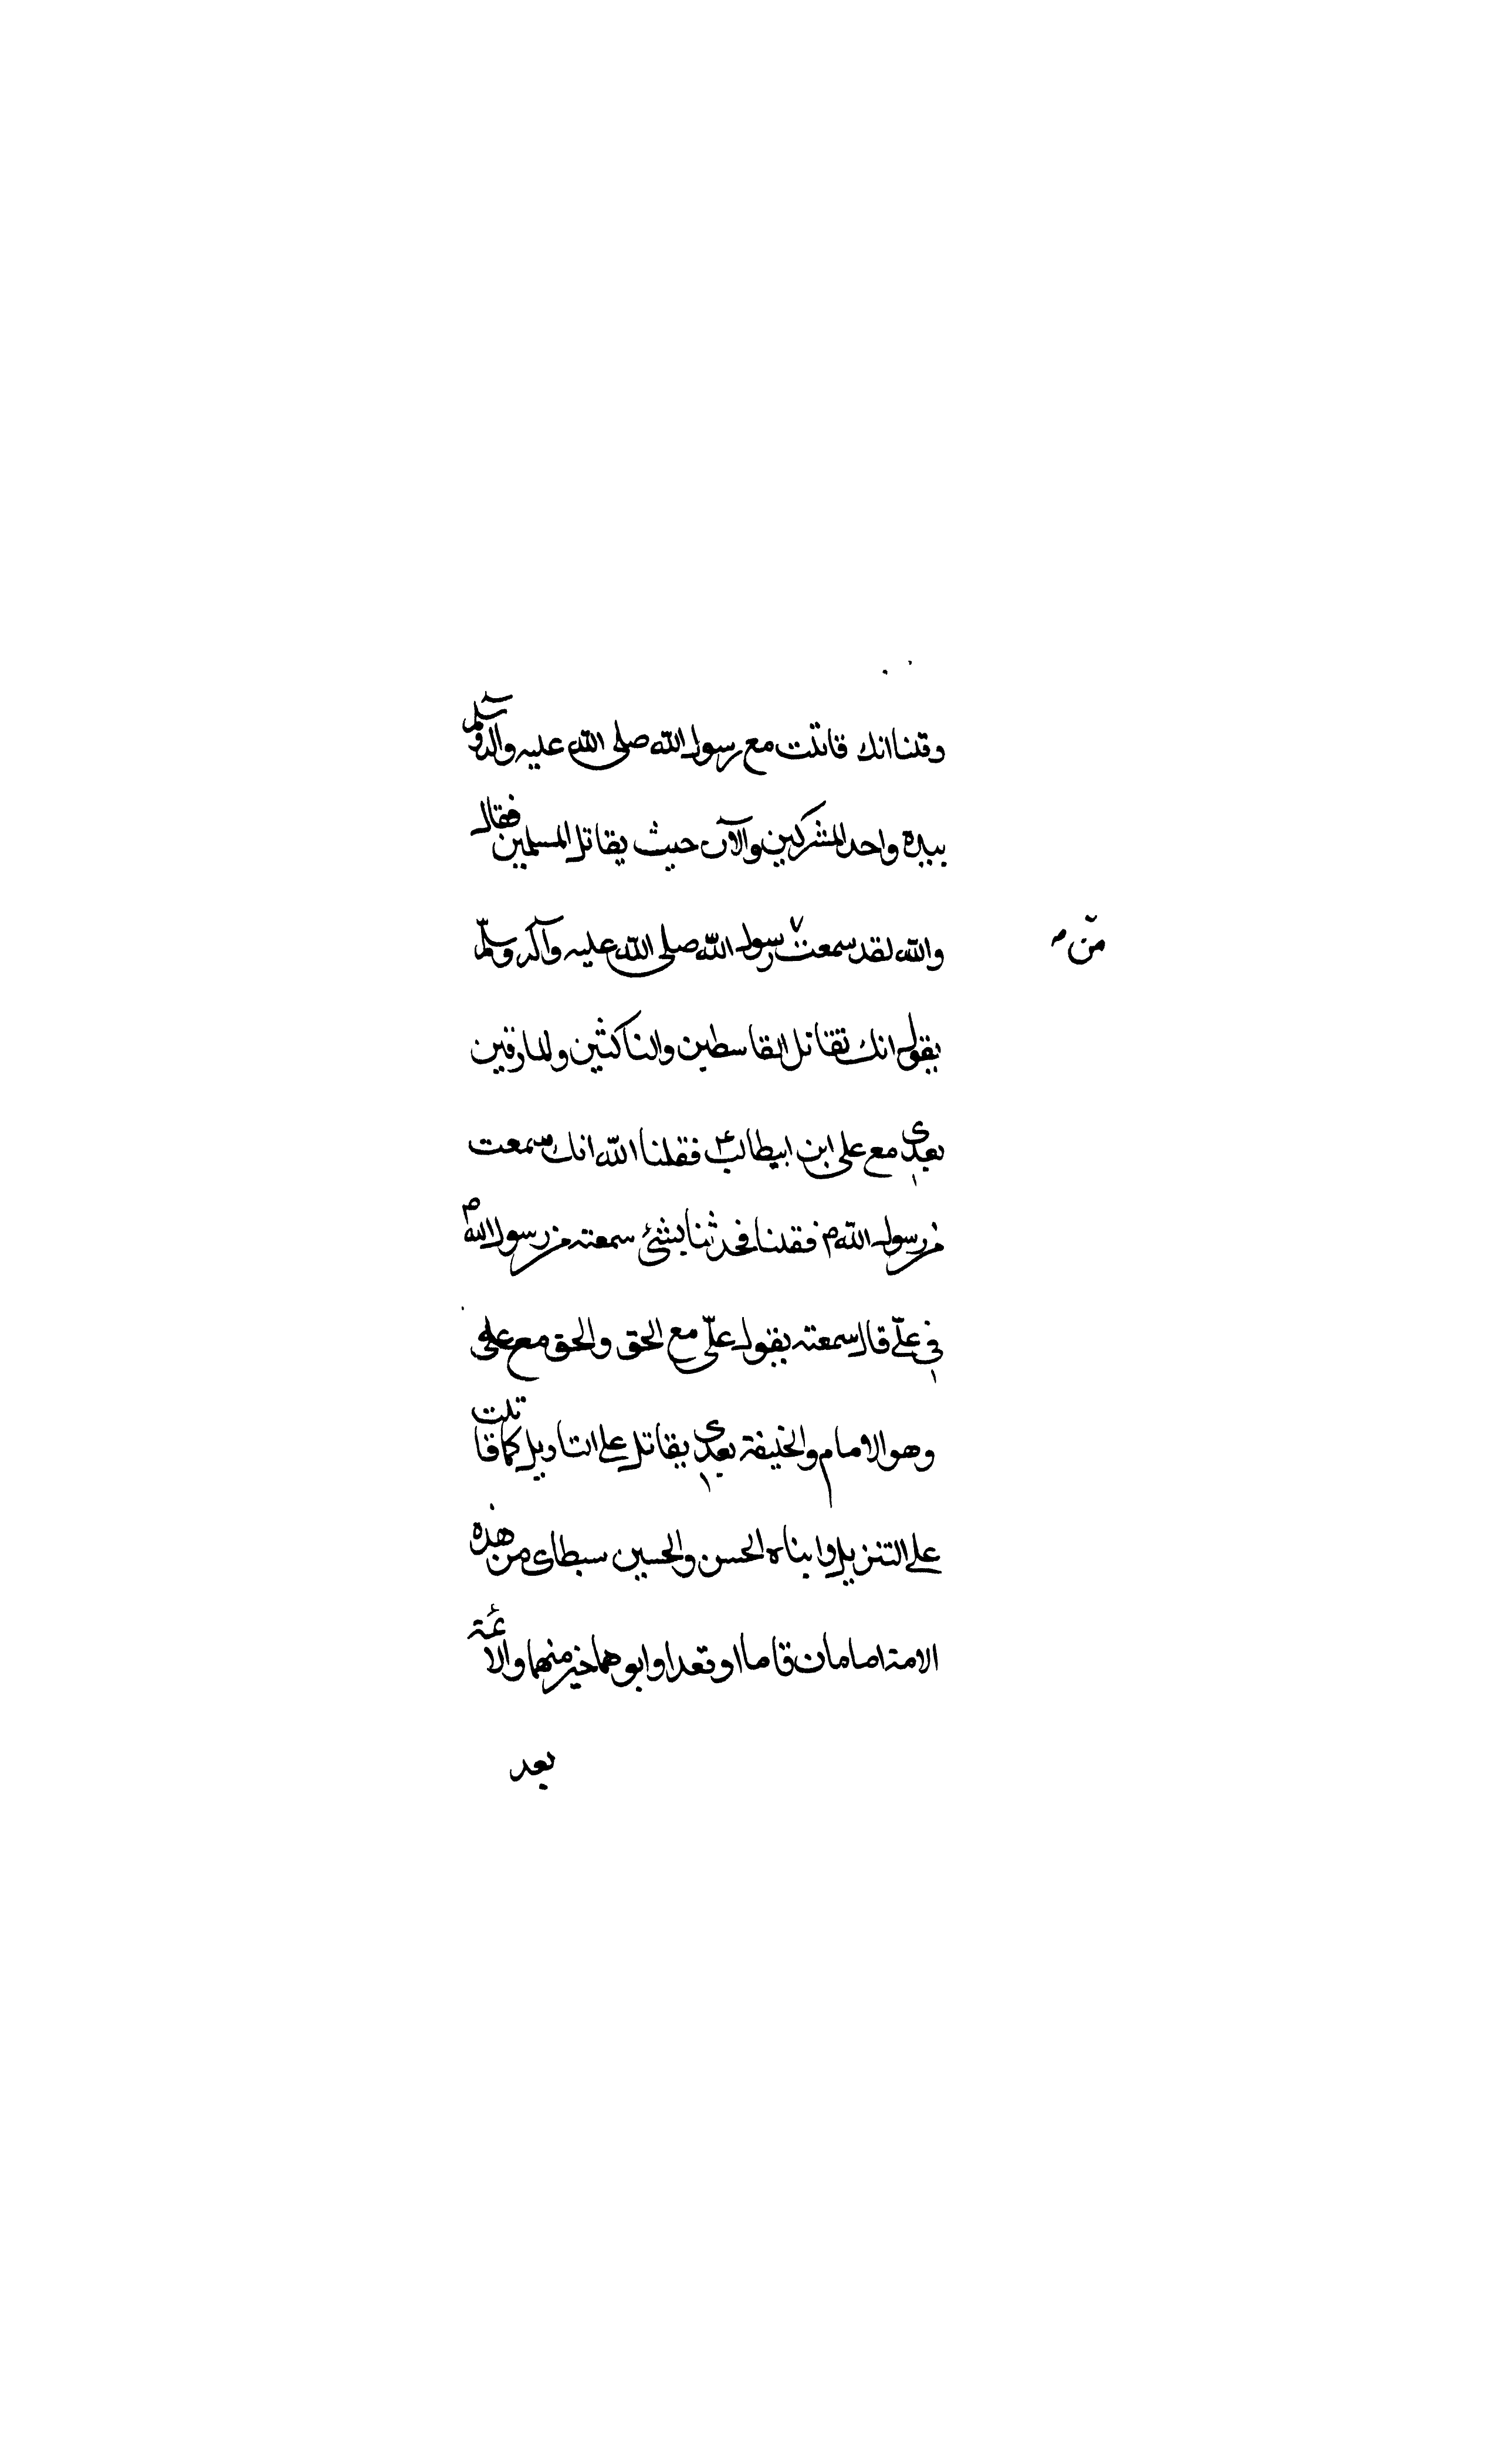 وقلنا انك قاتلت مع رسول الله صلى الله عليه وآله وسلم
ببدر واحد المشركين والآن حيث يقاتل المسلمين فقال
والله لقد سمعت رسول الله صلى الله عليه وآله وسلّم
من
يقول انك تقاتل القاسطين والناكثين والمارقين
بعدي مع على ابن ابيطالب ع فقلنا الله انك سمعت
من رسول الله ص فقلنا فحدثنا بشئ سمعته من رسول الله ص
في علّي قال سمعته يقول علّى مع الحق والحق مع على
وهو الامام والخليفة بعدي يقاتل على التاويل كما قاتلت
على التنزيل وابناه الحسن والحسين سبطاى من هذه
الامة امامان قاما او قعدا وابوهما خير منهما والائمة
بعد